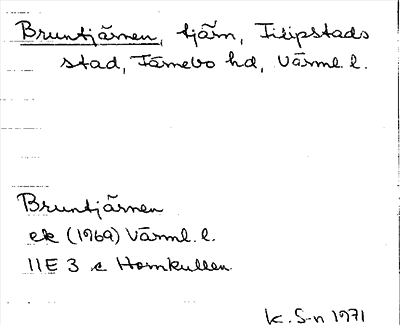 Bruntjärnen, tjärn, Filipstads
stad, Färnebo hd, Värml. l.
Bruntjärnen
ek (1969) Värml. l.
11E 3 c Hornkullen
K. S-n 1971